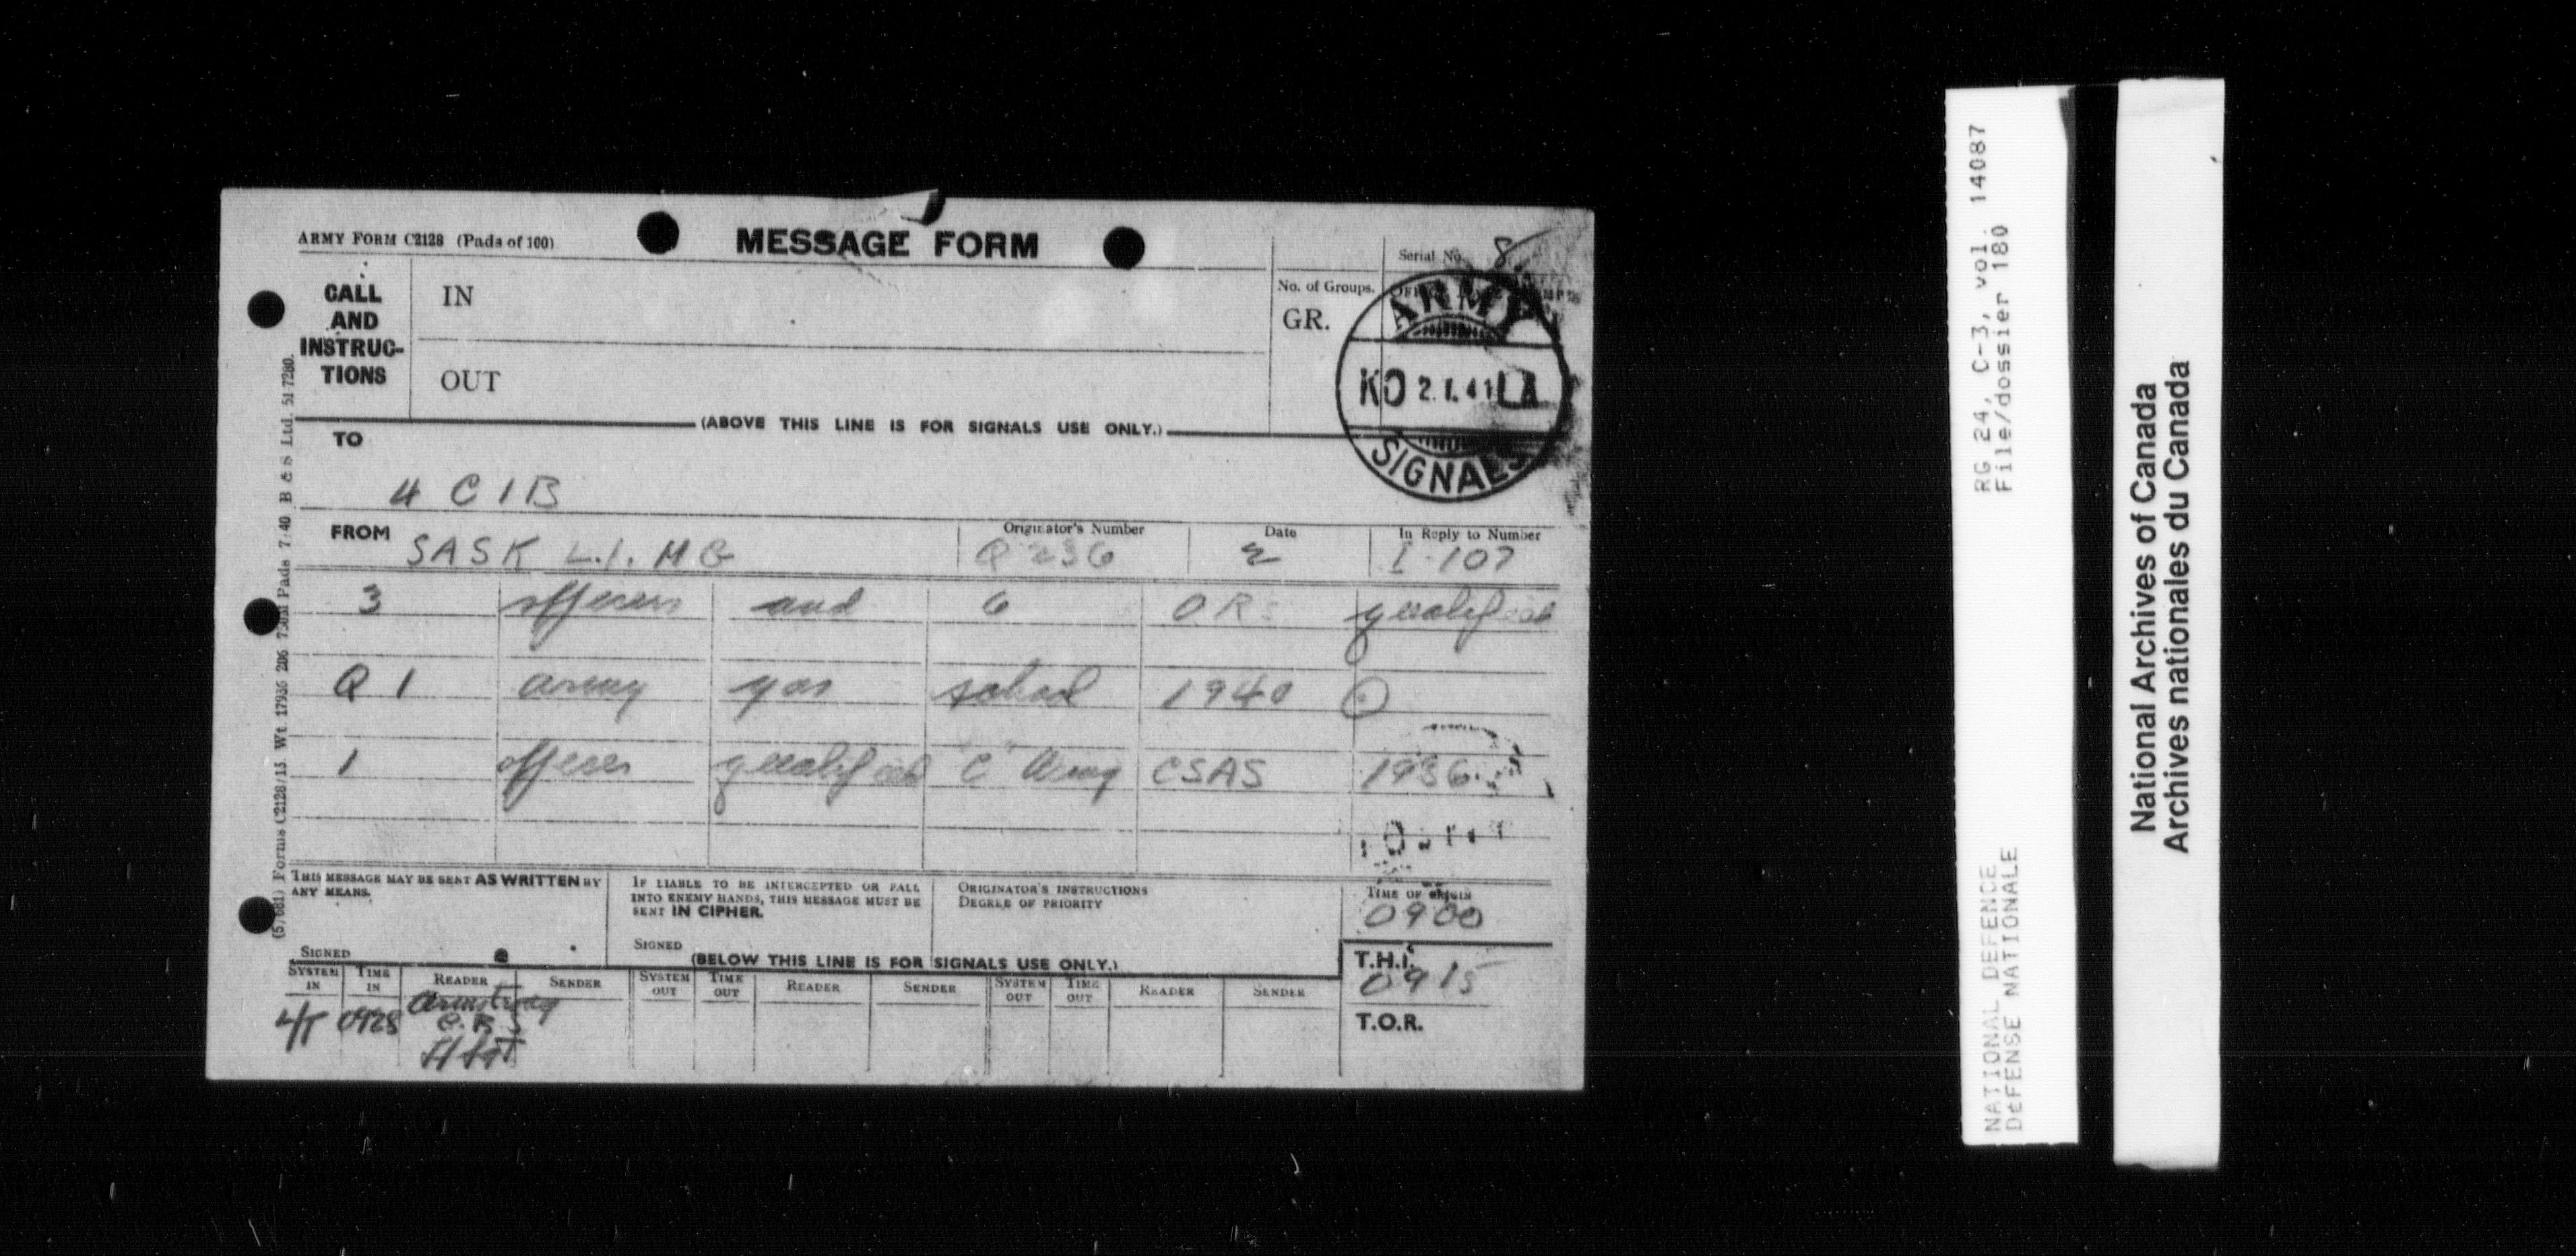 ARMY FORM C2128 (Pads of 100)
MESSAGE FORM
Serial No. 8
CALL AND INSTRUC-TIONS
IN
No. of Groups.
GR.
ARMY
KO 2.1.41 LA
SIGNALS
OUT
(ABOVE THIS LINE IS FOR SIGNALS USE ONLY.)
TO
4 C I B
FROM SASK L.I. M G
Originator's Number Q 236
Date 2
In Reply to Number I 107
3 officers and 6 O.R. qualified
Q 1 army gas school 1940
1 officer qualified "C" Army CSAS 1936
THIS MESSAGE MAY BE SENT AS WRITTEN BY ANY MEANS.
SIGNED
IF LIABLE TO BE INTERCEPTED OR FALL INTO ENEMY HANDS, THIS MESSAGE MUST BE SENT IN CIPHER.
SIGNED
ORIGINATOR'S INSTRUCTIONS
DEGREE OF PRIORITY
TIME OF ORIGIN
0900
(BELOW THIS LINE IS FOR SIGNALS USE ONLY.)
T.H.I.
0915
T.O.R.
SYSTEM IN TIME IN READER SENDER SYSTEM OUT TIME OUT READER SENDER SYSTEM OUT TIME OUT READER SENDER
0928 Armstrong
Forms C2128/15 Wt. 17936 286 Pads 7/40 B & S Ltd. 51 7280.
RG 24, C-3, vol. 14087
File/dossier 180
NATIONAL DEFENCE
DÉFENSE NATIONALE
National Archives of Canada
Archives nationales du Canada